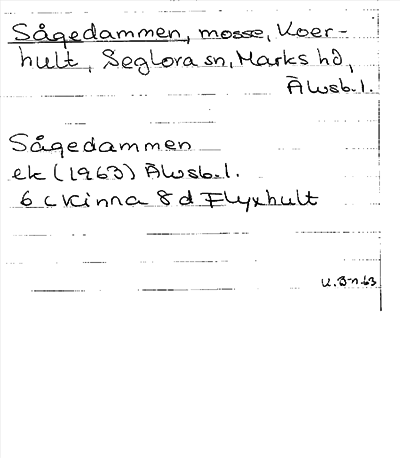 Sågedammen, mosse, Koer-
hult, Seglora sn, Marks hd,
Älvsb. l.
Sågedammen
ek (1963) Älvsb. l.
6 c Kinna 8 d Flyxhult